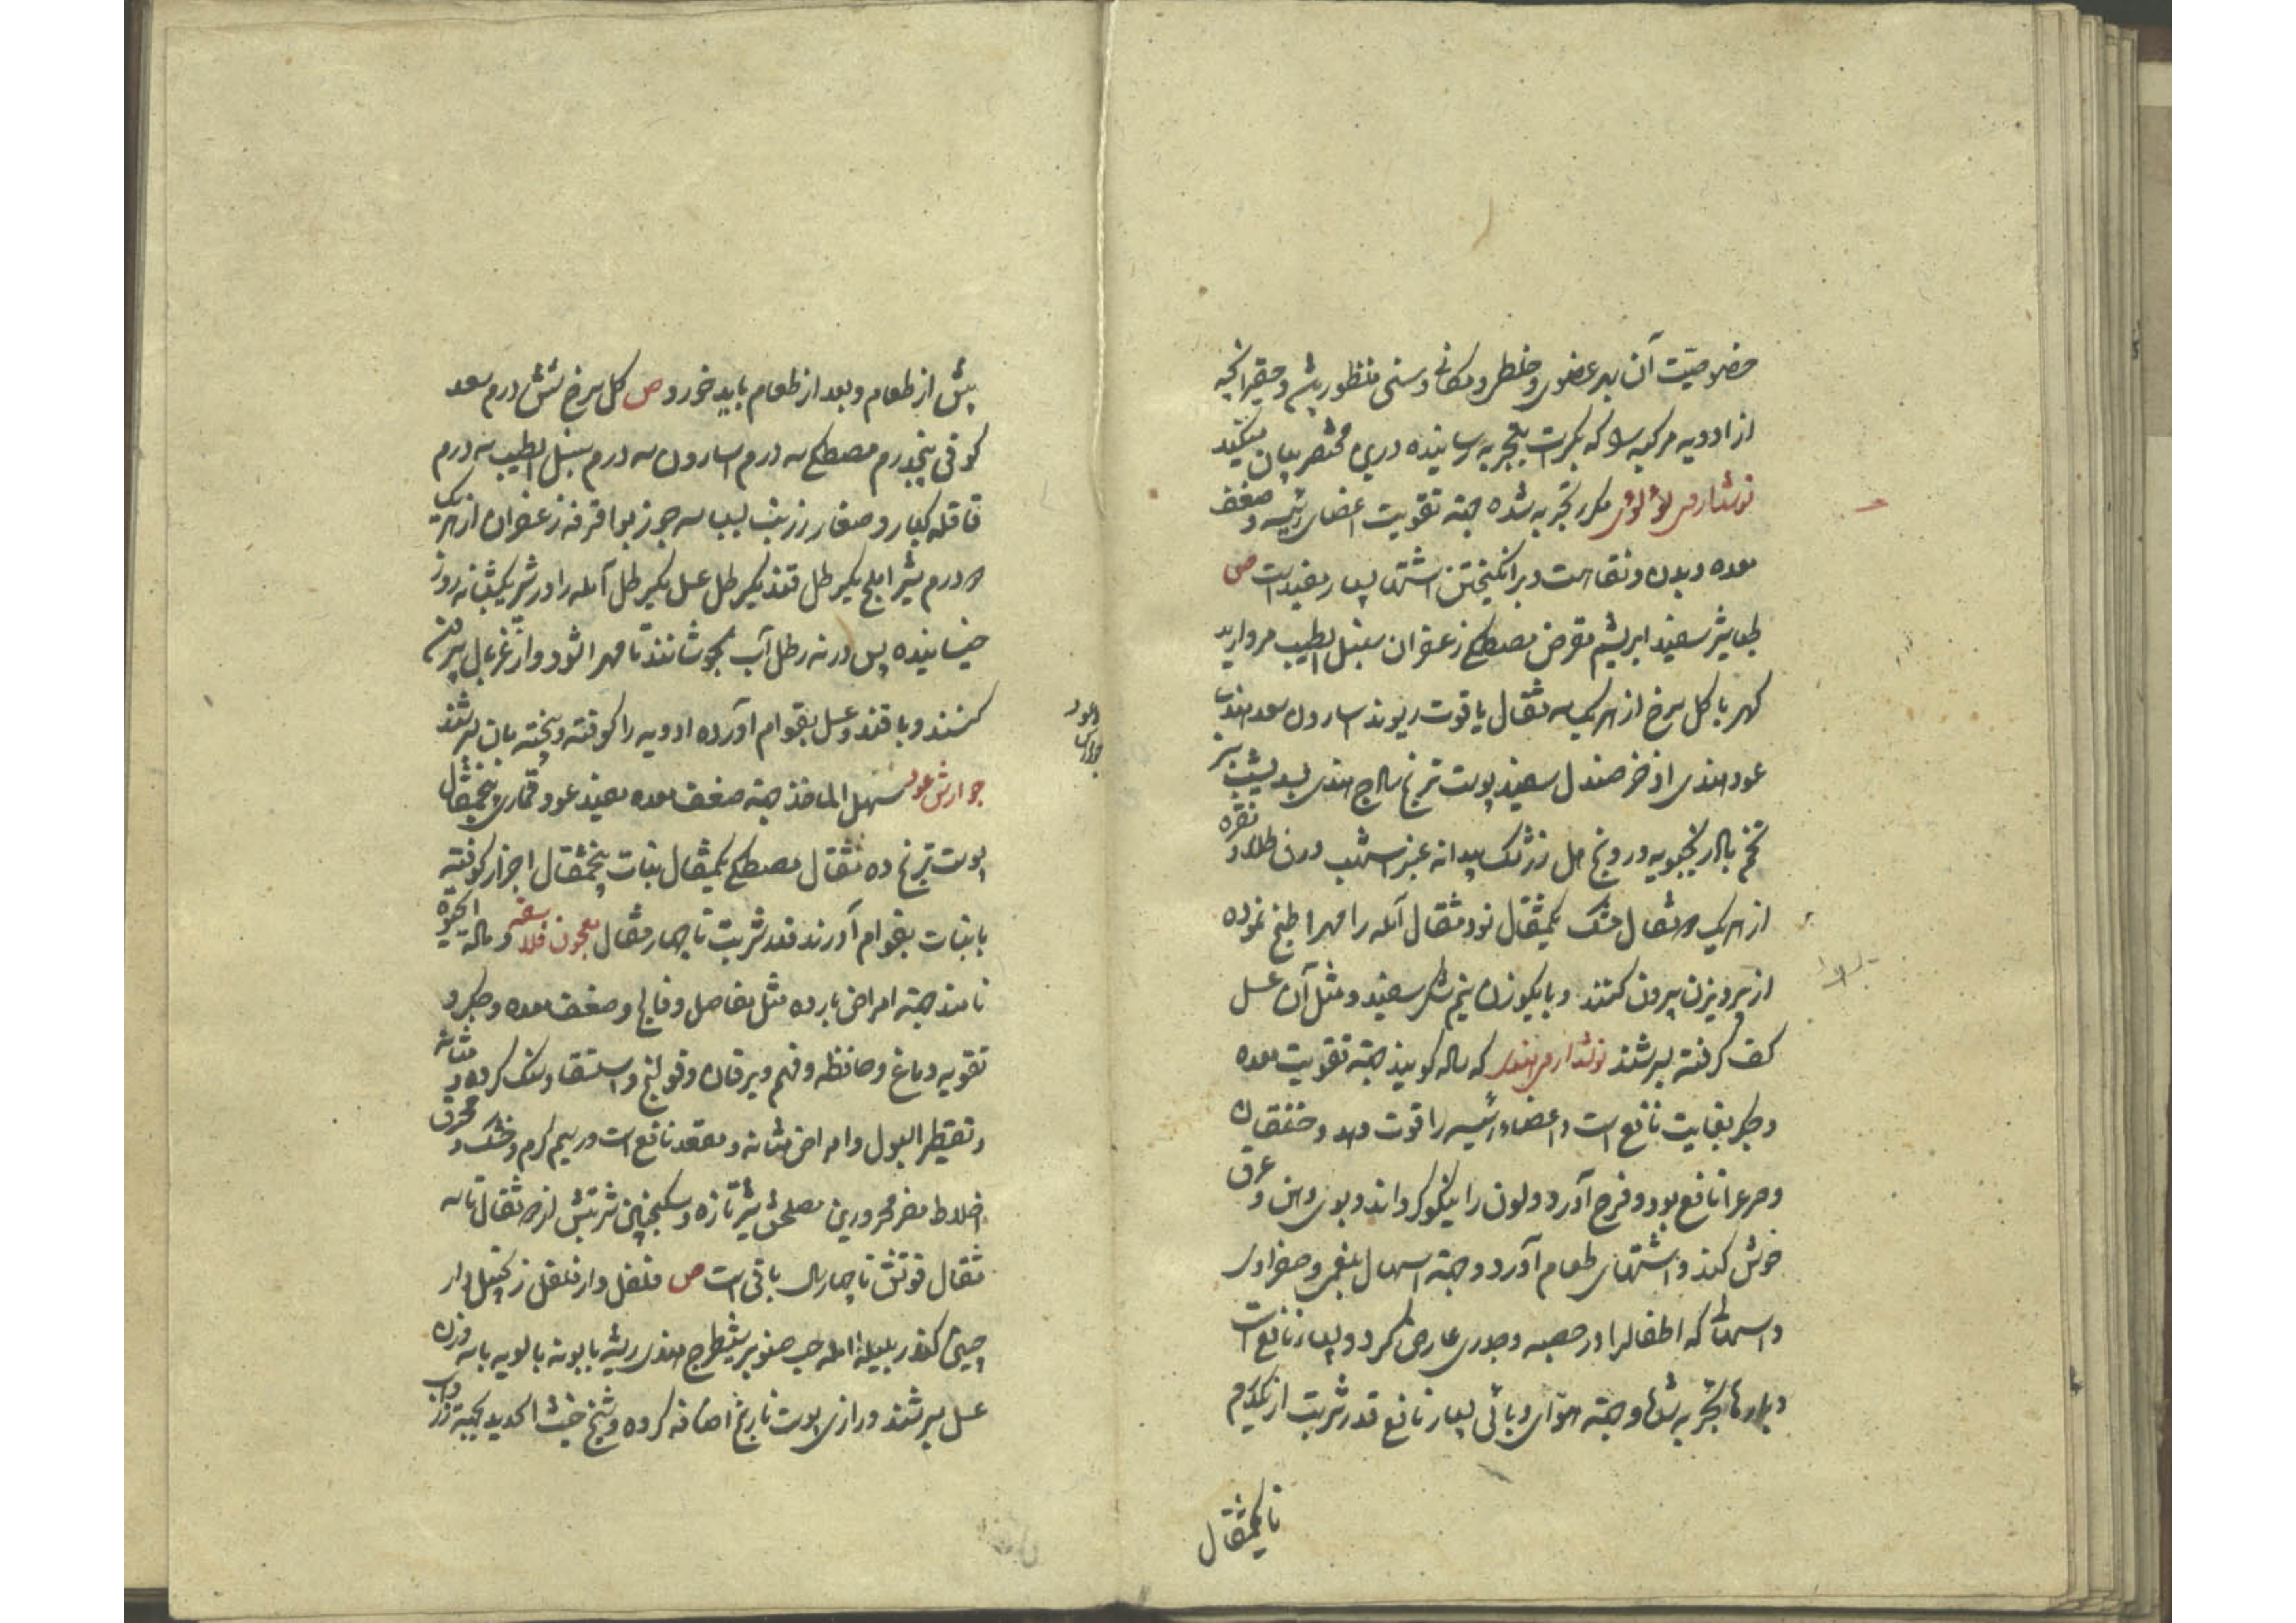 خصوصیت آن بهر عضوی و خلطی و مکانی و سنی منظور باشد و حقیر آنچه
از ادویه مرکبه را که بکرات بتجربه رسانیده درین مختصر بیان میکند
نوشدارو لؤلؤی مکرر تجربه شده جهة تقویت اعضای رئیسه و ضعف
معده و بدن و نقاهت و برانگیختن اشتها بسیار مفید است ص
طباشیر سفید ابریشم مقرض مصطکی زعفران سنبل الطیب مروارید
کهربا کل سرخ از هر یک سه مثقال یاقوت ریوند اسارون سعد هندی
عود هندی اذخر صندل سفید پوست ترنج سازج هندی بسد یشب سبز
تخم بادرنجبویه درونج هل زرشک بیدانه عنبر اشهب ورق طلا و نقره
از هر یک دو مثقال مشک یکمثقال نود مثقال آمله را مهرا طبخ نموده
از پرویزن بیرون کنند و با یکوزن نیم شکر سفید و مثل آن عسل
کف کرفته بسرشند نوشداروی هندی که ساله کویند جهة تقویت معده
و جکر بغایت نافع است و اعضاء رئیسه را قوت دهد و خفقان
و صرع را نافع بود و فرح آورد و لون را نیکو کرداند و بوی دهن و عرق
خوش کند و اشتهای طعام آورد و جهة اسهال بلغمی و صفراوی
و اسهالی که اطفال را در حصبه و جدری عارض کردد بسیار نافع است
و بارها تجربه شده و جهة هوای وبائی بسیار نافع قدر شربت از یکدرم
تا یکمثقال
پیش از طعام و بعد از طعام باید خورد ص کل سرخ شش درم سعد
کوفی پنجدرم مصطکی سه درم اسارون سه درم سنبل الطیب سه درم
قاقله کبار و صغار زرنب بسباسه جوزبوا قرفه زعفران از هر یک
دو درم شیر املج یکرطل قند یکرطل عسل یکرطل آمله را در شیر یکشبانه روز
خیسانیده پس در نه رطل آب بجوشانند تا مهرا شود و از غربال بیرون
کنند و با قند و عسل بقوام آورده ادویه را کوفته و بیخته بان بسرشند
جوارش عود
جوارش عود سهل الماخذ جهة ضعف معده مفید عود قماری پنجمثقال
پوست ترنج ده مثقال مصطکی یکمثقال نبات پنجمثقال اجزا را کوفته
با نبات بقوام آورند قدر شربت تا چهار مثقال معجون فلاسفه و مادة الحیوة
نامند جهة امراض بارده مثل مفاصل و فالج و ضعف معده و جکر و
تقویه دماغ و حافظه و فهم و یرقان و قولنج و استسقا و سنک کرده و مثانه
و تقطیر البول و امراض مثانه و مقعد نافع است در سیم کرم و خشک و محرق
اخلاط مضر محرورین مصلحش شیر تازه و سکنجبین شربتش از دو مثقال تا سه
مثقال قوتش تا چهار سال باقی است ص فلفل دارفلفل زنجبیل دار
چینی کندر بلیله آمله حب صنوبر شیطرج هندی ریشه بابونه بالسویه با سه وزن
عسل بسرشند و رازی پوست نارنج اضافه کرده و شیخ خبث الحدید